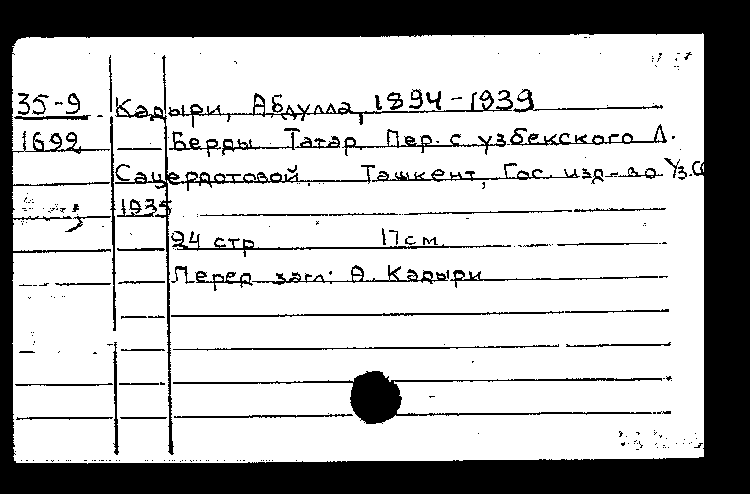 35-9 Кадыри, Абдулла, 1894-1939
1692 Берды Татар. Пер. с узбекского Л.
Сацердотовой. Ташкент, Гос. изд-во Уз.СС
1935
24 стр 17 см
Перед загл: А. Кадыри